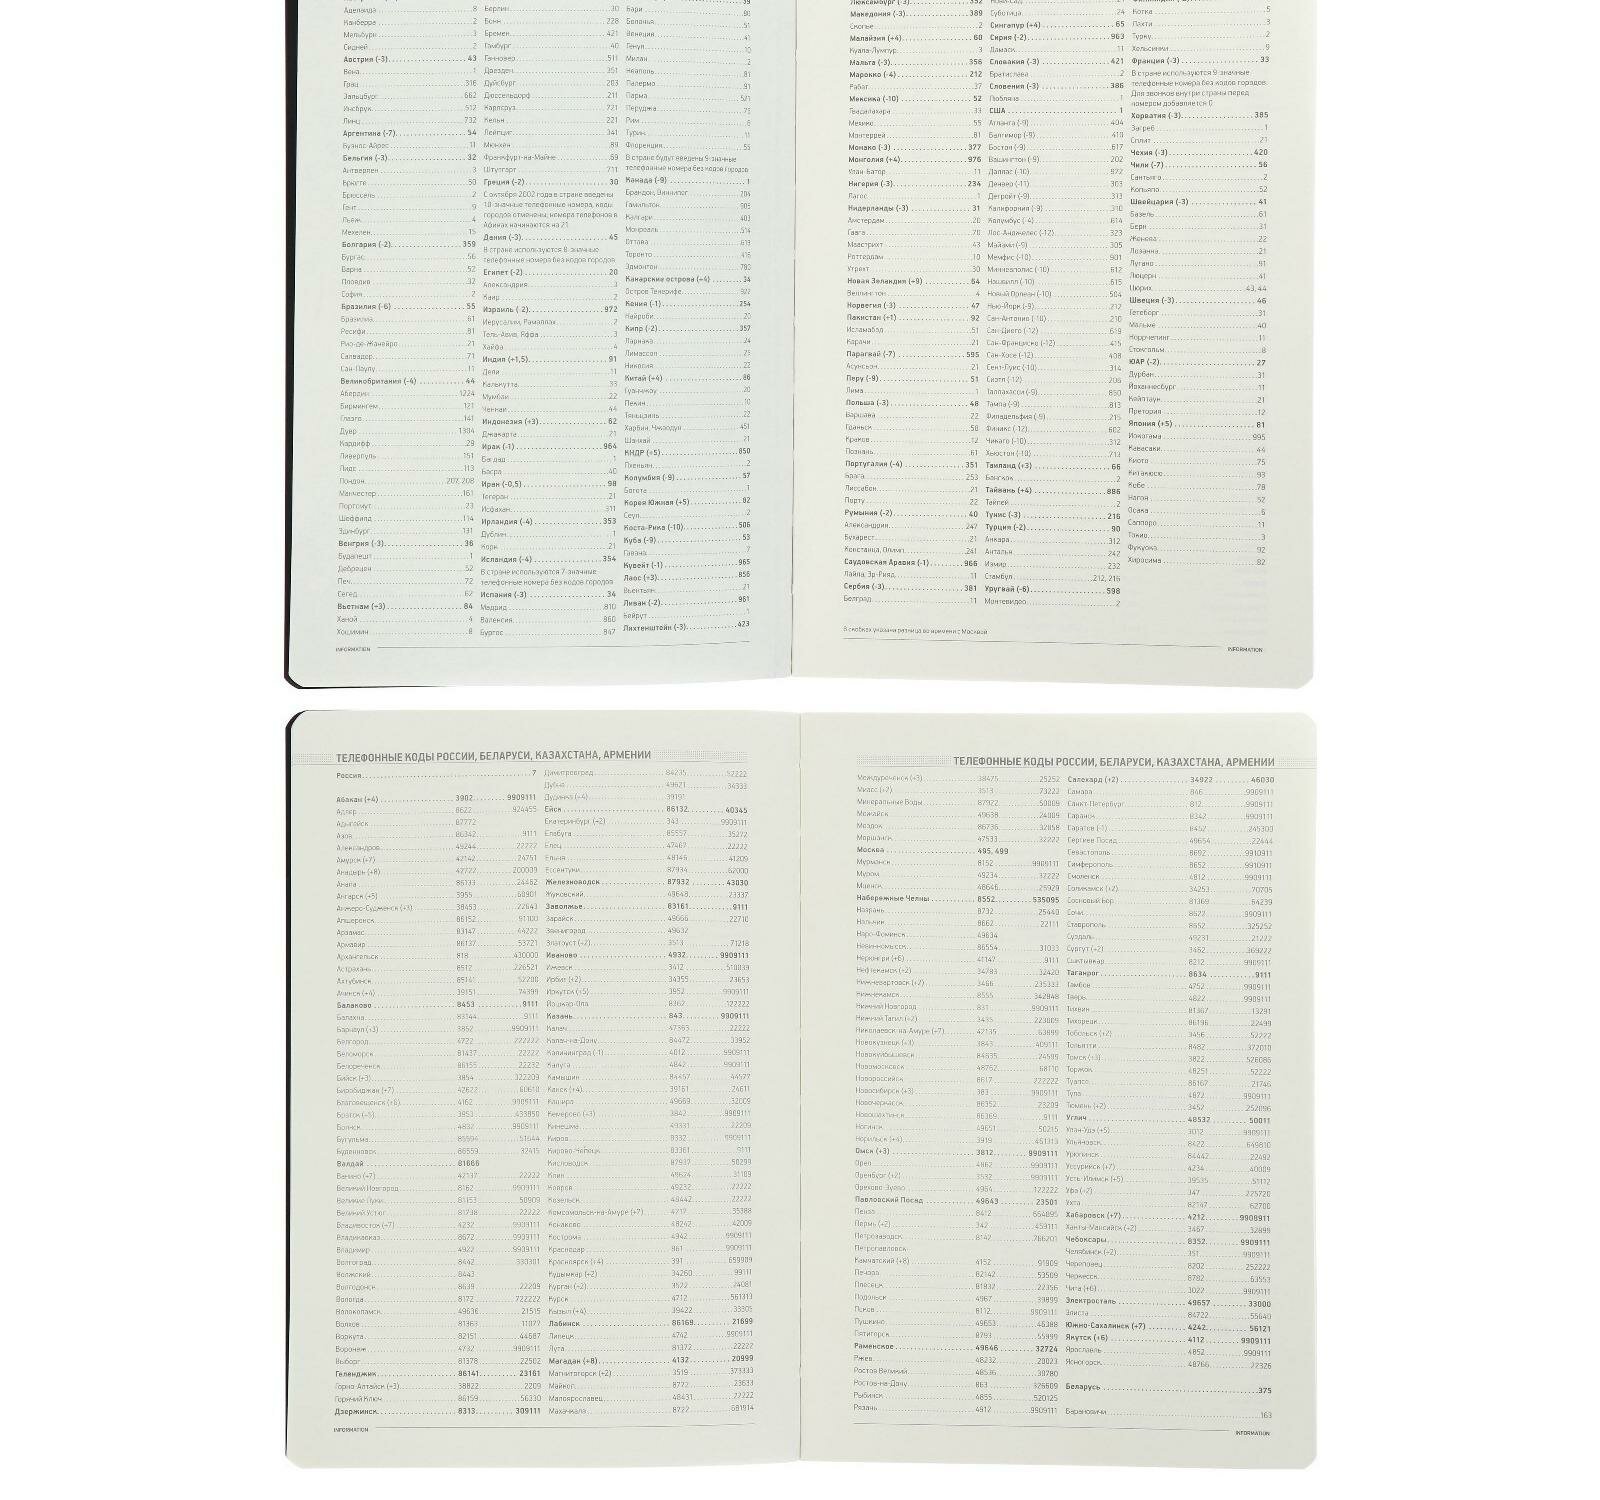 Аделаида 8
Канберра 2
Мельбурн 3
Сидней 2
Австрия (-3) 43
Вена 1
Грац 316
Зальцбург 662
Инсбрук 512
Линц 732
Аргентина (-7) 54
Буэнос-Айрес 11
Бельгия (-3) 32
Антверпен 3
Брюгге 50
Брюссель 2
Гент 9
Льеж 4
Мехелен 15
Болгария (-2) 359
Бургас 56
Варна 52
Пловдив 32
София 2
Бразилия (-6) 55
Бразилиа 61
Ресифи 81
Рио-де-Жанейро 21
Салвадор 71
Сан-Паулу 11
Великобритания (-4) 44
Абердин 1224
Бирмингем 121
Глазго 141
Дувр 1304
Кардифф 29
Ливерпуль 151
Лидс 113
Лондон 207, 208
Манчестер 161
Портсмут 23
Шеффилд 114
Эдинбург 131
Венгрия (-3) 36
Будапешт 1
Дебрецен 52
Печ 72
Сегед 62
Вьетнам (+3) 84
Ханой 4
Хошимин 8
Берлин 30
Бонн 228
Бремен 421
Гамбург 40
Ганновер 511
Дрезден 351
Дуйсбург 203
Дюссельдорф 211
Карлсруэ 721
Кельн 221
Лейпциг 341
Мюнхен 89
Франкфурт-на-Майне 69
Штутгарт 711
Греция (-2) 30
С октября 2002 года в стране введены
10-значные телефонные номера, коды
городов отменены; номера телефонов в
Афинах начинаются на 21
Дания (-3) 45
В стране используются 8-значные
телефонные номера без кодов городов
Египет (-2) 20
Александрия 3
Каир 2
Израиль (-2) 972
Иерусалим, Рамаллах 2
Тель-Авив, Яффа 3
Хайфа 4
Индия (+1,5) 91
Дели 11
Калькутта 33
Мумбаи 22
Ченнаи 44
Индонезия (+3) 62
Джакарта 21
Ирак (-1) 964
Багдад 1
Басра 40
Иран (-0,5) 98
Тегеран 21
Исфахан 311
Ирландия (-4) 353
Дублин 1
Корк 21
Исландия (-4) 354
В стране используются 7-значные
телефонные номера без кодов городов
Испания (-3) 34
Мадрид 810
Валенсия 860
Бургос 847
39
Бари 80
Болонья 51
Венеция 41
Генуя 10
Милан 2
Неаполь 81
Палермо 91
Парма 521
Перуджа 75
Рим 6
Турин 11
Флоренция 55
В стране будут введены 9-значные
телефонные номера без кодов городов
Канада (-9) 1
Брандон, Виннипег 204
Гамильтон 905
Калгари 403
Монреаль 514
Оттава 613
Торонто 416
Эдмонтон 780
Канарские острова (+4) 34
Остров Тенерифе 922
Кения (-1) 254
Найроби 20
Кипр (-2) 357
Ларнака 24
Лимассол 25
Никосия 22
Китай (+4) 86
Гуанчжоу 20
Пекин 10
Тяньцзинь 22
Харбин, Чжаодун 451
Шанхай 21
КНДР (+5) 850
Пхеньян 2
Колумбия (-9) 57
Богота 1
Корея Южная (+5) 82
Сеул 2
Коста-Рика (-10) 506
Куба (-9) 53
Гавана 7
Кувейт (-1) 965
Лаос (+3) 856
Вьентьян 21
Ливан (-2) 961
Бейрут 1
Лихтенштейн (-3) 423
INFORMATION
Люксембург (-3) 352
Македония (-3) 389
Скопье 2
Малайзия (+4) 60
Куала-Лумпур 3
Мальта (-3) 356
Марокко (-4) 212
Рабат 37
Мексика (-10) 52
Гвадалахара 33
Мехико 55
Монтеррей 81
Монако (-3) 377
Монголия (+4) 976
Улан-Батор 11
Нигерия (-3) 234
Лагос 1
Нидерланды (-3) 31
Амстердам 20
Гаага 70
Маастрихт 43
Роттердам 10
Утрехт 30
Новая Зеландия (+9) 64
Веллингтон 4
Норвегия (-3) 47
Пакистан (+1) 92
Исламабад 51
Карачи 21
Парагвай (-7) 595
Асунсьон 21
Перу (-9) 51
Лима 1
Польша (-3) 48
Варшава 22
Гданьск 58
Краков 12
Познань 61
Португалия (-4) 351
Брага 253
Лиссабон 21
Порту 22
Румыния (-2) 40
Александрия 247
Бухарест 21
Констанца, Олимп 241
Саудовская Аравия (-1) 966
Лайла, Эр-Рияд 11
Сербия (-3) 381
Белград 11
Нови-Сад 21
Суботица 24
Сингапур (+4) 65
Сирия (-2) 963
Дамаск 11
Словакия (-3) 421
Братислава 2
Словения (-3) 386
Любляна 1
США 1
Атланта (-9) 404
Балтимор (-9) 410
Бостон (-9) 617
Вашингтон (-9) 202
Даллас (-10) 972
Денвер (-11) 303
Детройт (-9) 313
Калифорния (-9) 310
Колумбус (-4) 614
Лос-Анджелес (-12) 323
Майами (-9) 305
Мемфис (-10) 901
Миннеаполис (-10) 612
Нашвилл (-10) 615
Новый Орлеан (-10) 504
Нью-Йорк (-9) 212
Сан-Антонио (-10) 210
Сан-Диего (-12) 619
Сан-Франциско (-12) 415
Сан-Хосе (-12) 408
Сент-Луис (-10) 314
Сиэтл (-12) 206
Таллахасси (-9) 850
Тампа (-9) 813
Филадельфия (-9) 215
Финикс (-12) 602
Чикаго (-10) 312
Хьюстон (-10) 713
Таиланд (+3) 66
Бангкок 2
Тайвань (+4) 886
Тайпей 2
Тунис (-3) 216
Турция (-2) 90
Анкара 312
Анталья 242
Измир 232
Стамбул 212, 216
Уругвай (-6) 598
Монтевидео 2
Котка 5
Лахти 3
Турку 2
Хельсинки 9
Франция (-3) 33
В стране используются 9-значные
телефонные номера без кодов городов.
Для звонков внутри страны перед
номером добавляется 0
Хорватия (-3) 385
Загреб 1
Сплит 21
Чехия (-3) 420
Чили (-7) 56
Сантьяго 2
Копьяпо 52
Швейцария (-3) 41
Базель 61
Берн 31
Женева 22
Лозанна 21
Лугано 91
Люцерн 41
Цюрих 43, 44
Швеция (-3) 46
Гетеборг 31
Мальме 40
Норрчепинг 11
Стокгольм 8
ЮАР (-2) 27
Дурбан 31
Йоханнесбург 11
Кейптаун 21
Претория 12
Япония (+5) 81
Иокогама 995
Кавасаки 44
Киото 75
Китакюсю 93
Кобе 78
Нагоя 52
Осака 6
Саппоро 11
Токио 3
Фукуока 92
Хиросима 82
В скобках указана разница во времени с Москвой
INFORMATION
ТЕЛЕФОННЫЕ КОДЫ РОССИИ, БЕЛАРУСИ, КАЗАХСТАНА, АРМЕНИИ
Россия 7
Абакан (+4) 3902 9909111
Адлер 8622 924455
Адыгейск 87772
Азов 86342 9111
Александров 49244 22222
Амурск (+7) 42142 24751
Анадырь (+8) 42722 200009
Анапа 86133 24462
Ангарск (+5) 3955 60901
Анжеро-Судженск (+3) 38453 22643
Апшеронск 86152 91100
Арзамас 83147 44222
Армавир 86137 53721
Архангельск 818 430000
Астрахань 8512 226521
Ахтубинск 85141 52200
Ачинск (+4) 39151 74399
Балаково 8453 9111
Балахна 83144 9111
Барнаул (+3) 3852 9909111
Белгород 4722 222222
Беломорск 81437 22222
Белореченск 86155 22232
Бийск (+3) 3854 322209
Биробиджан (+7) 42622 60610
Благовещенск (+6) 4162 9909111
Братск (+5) 3953 433850
Брянск 4832 9909111
Бугульма 85594 51644
Буденновск 86559 32415
Валдай 81666
Ванино (+7) 42137 22222
Великий Новгород 8162 9909111
Великие Луки 81153 50909
Великий Устюг 81738 22222
Владивосток (+7) 4232 9909111
Владикавказ 8672 9909111
Владимир 4922 9909111
Волгоград 8442 330301
Волжский 8443
Волгодонск 8639 22209
Вологда 8172 722222
Волоколамск 49636 21515
Волхов 81363 11077
Воркута 82151 44687
Воронеж 4732 9909111
Выборг 81378 22502
Геленджик 86141 23161
Горно-Алтайск (+3) 38822 2209
Горячий Ключ 86159 56330
Дзержинск 8313 309111
Димитровград 84235 52222
Дубна 49621 34333
Дудинка (+4) 39191
Ейск 86132 40345
Екатеринбург (+2) 343 9909111
Елабуга 85557 35272
Елец 47467 22222
Ельня 48146 41209
Ессентуки 87934 62000
Железноводск 87932 43030
Жуковский 49648 23337
Заволжье 83161 9111
Зарайск 49666 22710
Звенигород 49632
Златоуст (+2) 3513 71218
Иваново 4932 9909111
Ижевск 3412 510039
Ирбит (+2) 34355 23653
Иркутск (+5) 3952 9909111
Йошкар-Ола 8362 122222
Казань 843 9909111
Калач 47363 22222
Калач-на-Дону 84472 33952
Калининград (-1) 4012 9909111
Калуга 4842 9909111
Камышин 84457 44577
Канск (+4) 39161 24611
Кашира 49669 32009
Кемерово (+3) 3842 9909111
Кинешма 49331 22209
Киров 8332 9909111
Кирово-Чепецк 83361 9111
Кисловодск 87937 50299
Клин 49624 31189
Ковров 49232 22222
Козельск 48442 22222
Комсомольск-на-Амуре (+7) 4217 35388
Конаково 48242 42009
Кострома 4942 9909111
Краснодар 861 9909111
Красноярск (+4) 391 659909
Кудымкар (+2) 34260 99111
Курган (+2) 3522 24081
Курск 4712 561313
Кызыл (+4) 39422 33305
Лабинск 86169 21699
Липецк 4742 9909111
Луга 81372 22222
Магадан (+8) 4132 20999
Магнитогорск (+2) 3519 373333
Майкоп 8772 23633
Малоярославец 48431 22222
Махачкала 8722 681914
INFORMATION
ТЕЛЕФОННЫЕ КОДЫ РОССИИ, БЕЛАРУСИ, КАЗАХСТАНА, АРМЕНИИ
Междуреченск (+3) 38475 25252
Миасс (+2) 3513 73222
Минеральные Воды 87922 50009
Можайск 49638 24009
Моздок 86736 32058
Моршанск 47533 32222
Москва 495, 499
Мурманск 8152 9909111
Муром 49234 32222
Мценск 48646 25929
Набережные Челны 8552 535095
Назрань 8732 25440
Нальчик 8662 22111
Наро-Фоминск 49634
Невинномысск 86554 31033
Нерюнгри (+6) 41147 9111
Нефтекамск (+2) 34783 32420
Нижневартовск (+2) 3466 235333
Нижнекамск 8555 342848
Нижний Новгород 831 9909111
Нижний Тагил (+2) 3435 223009
Николаевск-на-Амуре (+7) 42135 63899
Новокузнецк (+3) 3843 409111
Новокуйбышевск 84635 24599
Новомосковск 48762 68110
Новороссийск 8617 222222
Новосибирск (+3) 383 9909111
Новочеркасск 86352 23209
Новошахтинск 86369 9111
Ногинск 49651 50215
Норильск (+4) 3919 461313
Омск (+3) 3812 9909111
Орел 4862 9909111
Оренбург (+2) 3532 9909111
Орехово-Зуево 4964 122222
Павловский Посад 49643 23501
Пенза 8412 664895
Пермь (+2) 342 459111
Петрозаводск 8142 766201
Петропавловск
Камчатский (+8) 4152 91909
Печора 82142 53509
Плесецк 81832 22356
Подольск 4967 39899
Псков 8112 9909111
Пушкино 49653 46388
Пятигорск 8793 55999
Раменское 49646 32724
Ржев 48232 20023
Ростов Великий 48536 30780
Ростов-на-Дону 863 326609
Рыбинск 4855 520125
Рязань 4912 9909111
Салехард (+2) 34922 46030
Самара 846 9909111
Санкт-Петербург 812 9909111
Саранск 8342 9909111
Саратов (-1) 8452 245300
Сергиев Посад 49654 22444
Севастополь 8692 9910911
Симферополь 8652 9910911
Смоленск 4812 9909111
Соликамск (+2) 34253 70705
Сосновый Бор 81369 64239
Сочи 8622 9909111
Ставрополь 8652 325252
Суздаль 49231 21222
Сургут (+2) 3462 369222
Сыктывкар 8212 9909111
Таганрог 8634 9111
Тамбов 4752 9909111
Тверь 4822 9909111
Тихвин 81367 13291
Тихорецк 86196 22499
Тобольск (+2) 3456 52222
Тольятти 8482 372010
Томск (+3) 3822 526086
Торжок 48251 52222
Туапсе 86167 21746
Тула 4872 9909111
Тюмень (+2) 3452 252096
Углич 48532 50011
Улан-Удэ (+5) 3012 9909111
Ульяновск 8422 649810
Урюпинск 84442 22492
Уссурийск (+7) 4234 40009
Усть-Илимск (+5) 39535 51112
Уфа (+2) 347 225720
Ухта 82147 62700
Хабаровск (+7) 4212 9909911
Ханты-Мансийск (+2) 3467 32899
Чебоксары 8352 9909111
Челябинск (+2) 351 9909111
Череповец 8202 252222
Черкесск 8782 63553
Чита (+6) 3022 9909111
Электросталь 49657 33000
Элиста 84722 55640
Южно-Сахалинск (+7) 4242 56121
Якутск (+6) 4112 9909111
Ярославль 4852 9909111
Ясногорск 48766 22326
Беларусь 375
Барановичи 163
INFORMATION